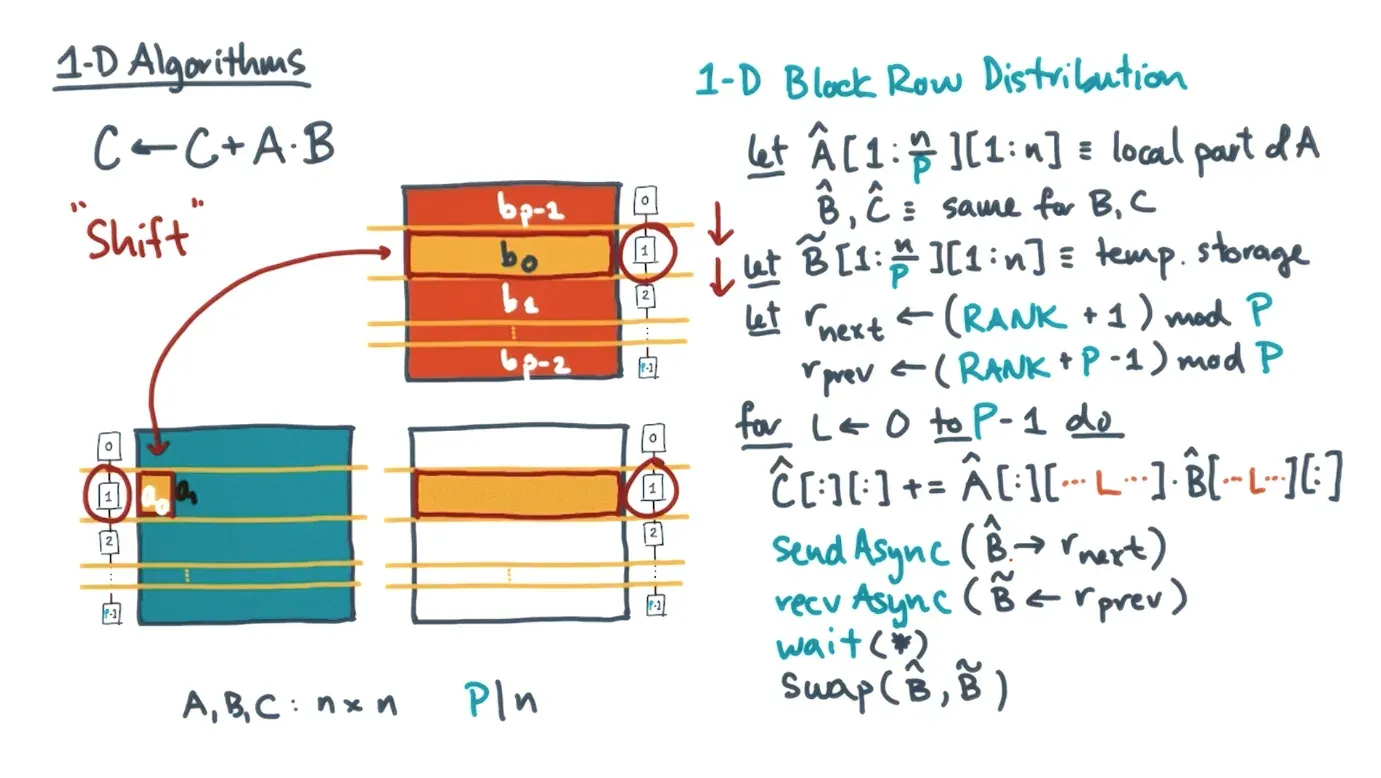 1-D Algorithms
C ← C + A·B
"Shift"
b_{p-1}
b_0
b_1
⋮
b_{p-2}
0
1
2
⋮
P-1
0
1
2
⋮
P-1
a_0 a_1
⋮
⋮
0
1
2
⋮
P-1
A, B, C : n × n P|n
1-D Block Row Distribution
let Â[1:n/P][1:n] ≡ local part of A
B̂, Ĉ ≡ same for B, C
let B̃[1:n/P][1:n] ≡ temp. storage
let r_next ← (RANK + 1) mod P
r_prev ← (RANK + P - 1) mod P
for L ← 0 to P-1 do
Ĉ[:][:] += Â[:][...L...]·B̂[...L...][:]
sendAsync (B̂ → r_next)
recvAsync (B̃ ← r_prev)
wait(*)
swap(B̂, B̃)